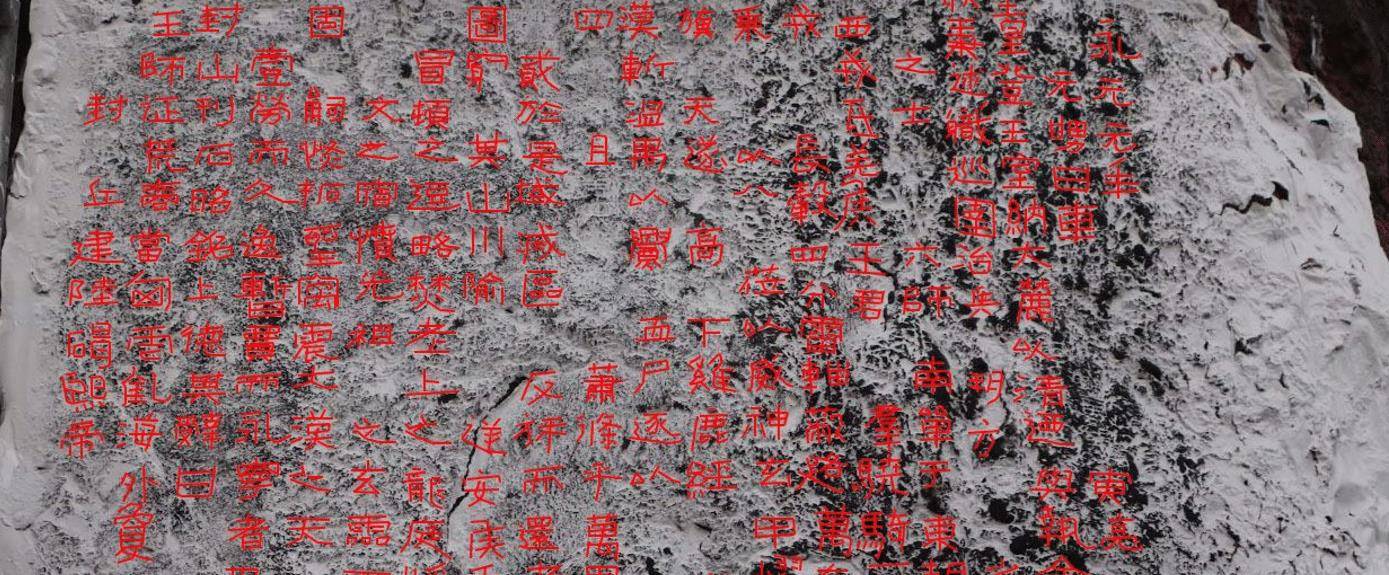 永元元年寅亮
元舅曰車與執
皇登王室納大麓以清迺
秉述職巡圉治兵朔方
之士六師南單于東胡
西戎氐羌侯王君羣驍騎
戎長轂四分雷輜蔽路萬
乘以八莅以威神玄甲燿
旗天遂高下雞鹿經
漠斬温禺以釁血尸逐以
四且蕭條千萬里
寇於是域滅區反旆而還
圖窮其山川隃安侯
冒頓之逗略焚老上之龍庭
文之宿憤光祖之玄靈下
固嗣恢拓畺宇震大漢之天
壹勞而久逸暫費而永寧者
封山刊石昭銘上德其辭曰
王師征荒當匈虐亂海外夐
封丘建碣熙帝